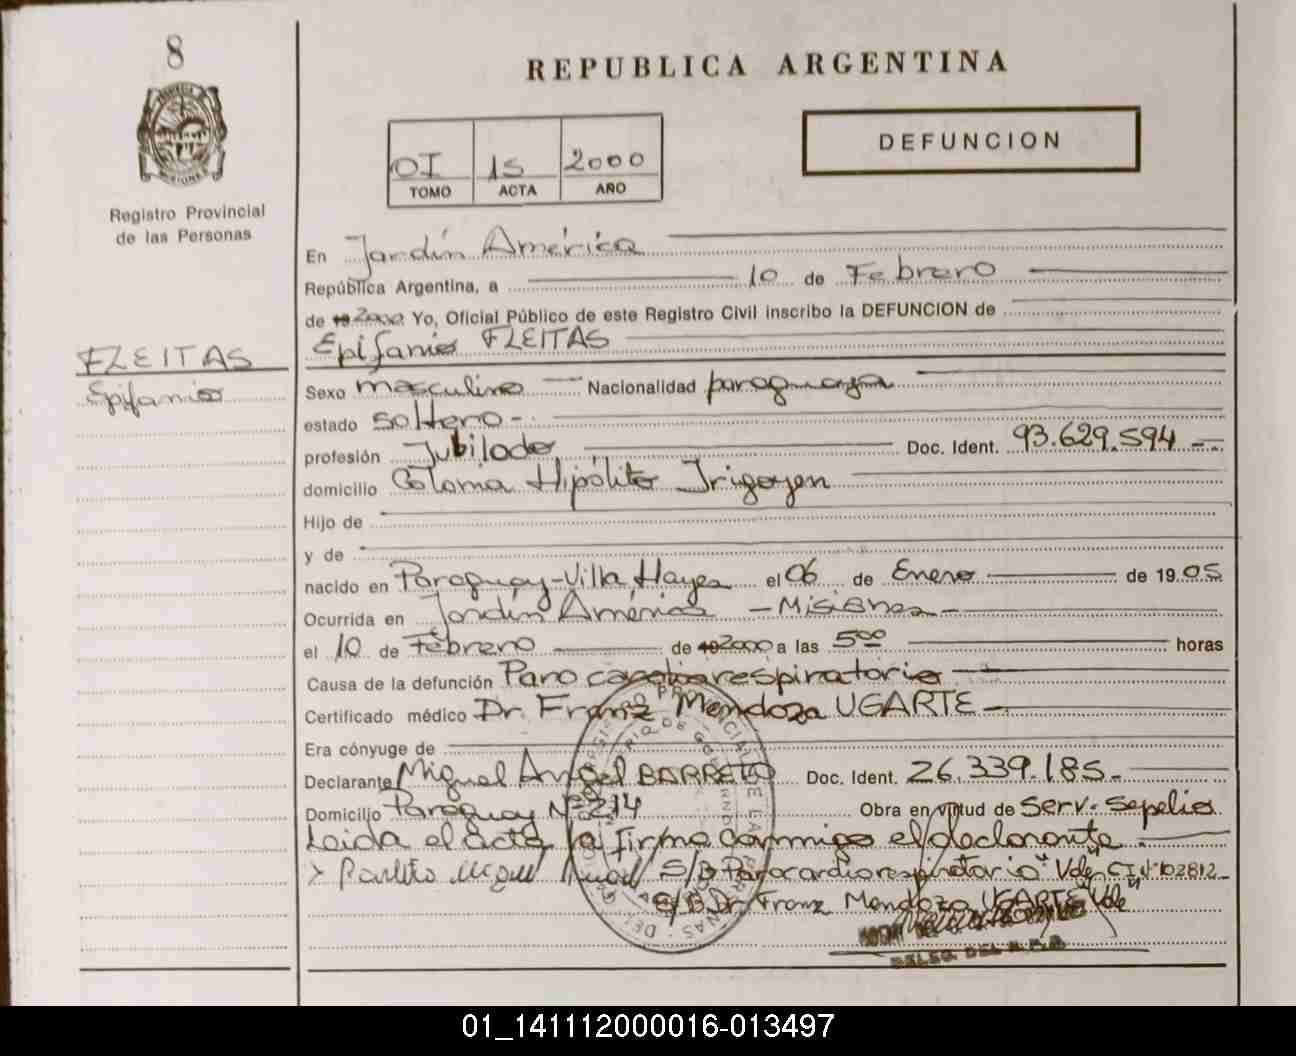 8
REPUBLICA ARGENTINA
DEFUNCION
OI 15 2000
TOMO ACTA AÑO
Registro Provincial
de las Personas
En Jardín América
República Argentina, a 10 de Febrero
de 19 2000 Yo, Oficial Público de este Registro Civil inscribo la DEFUNCION de
FLEITAS
Epifanio
Epifanio FLEITAS
Sexo masculino Nacionalidad paraguaya
estado soltero -
profesión Jubilado Doc. Ident. 93.629.594 --
domicilio Colonia Hipólito Irigoyen
Hijo de
y de
nacido en Paraguay-Villa Hayes el 06 de Enero de 19 05
Ocurrida en Jardín América - Misiones -
el 10 de Febrero de 19 2000 a las 5 00 horas
Causa de la defunción Paro cardiorespiratorio
Certificado médico Dr. Franz Mendoza UGARTE -
Era cónyuge de
Declarante Miguel Angel BARRETO Doc. Ident. 26.339.185-
Domicilio Paraguay Nº 214 Obra en virtud de Serv. Sepelio
Leida el acta la firma conmigo el declarante.
Miguel S/B "Paro cardiorespiratorio" Vale CI Nº 102812
S/B Dr. Franz Mendoza UGARTE "Vale"
DELEG. DEL R.P.P.
01_141112000016-013497